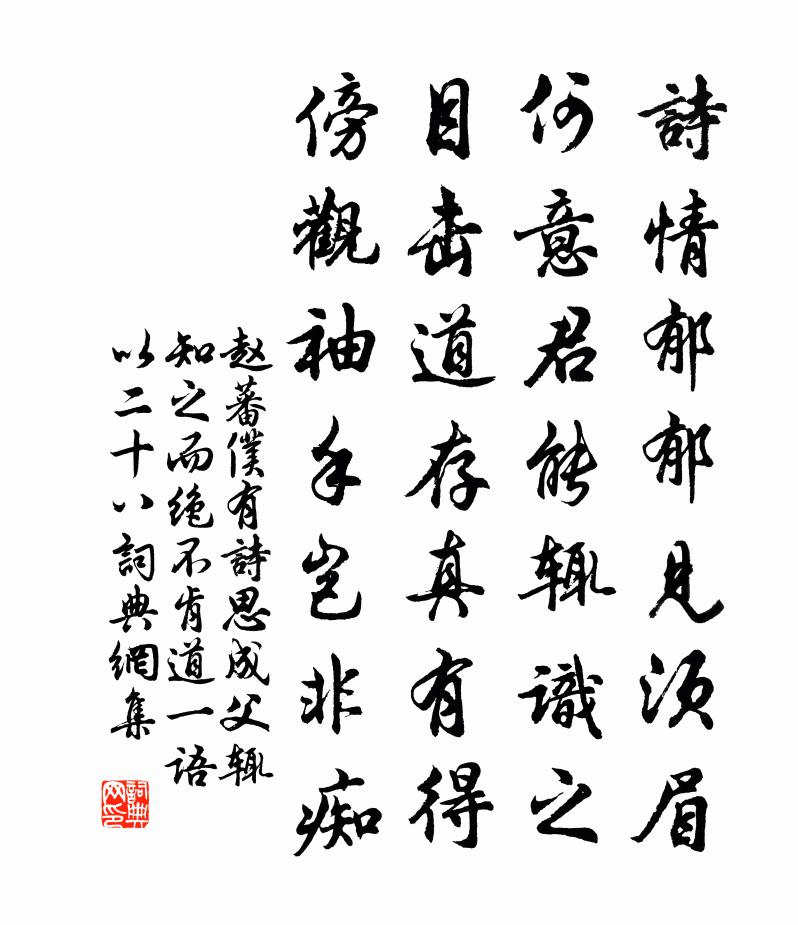 詩情郁郁見須眉
何意君能輒識之
目击道存真有得
傍觀袖手豈非痴
赵蕃僕有詩思成父輒
知之而绝不肯道一语
以二十八詞典網集
詞典网印